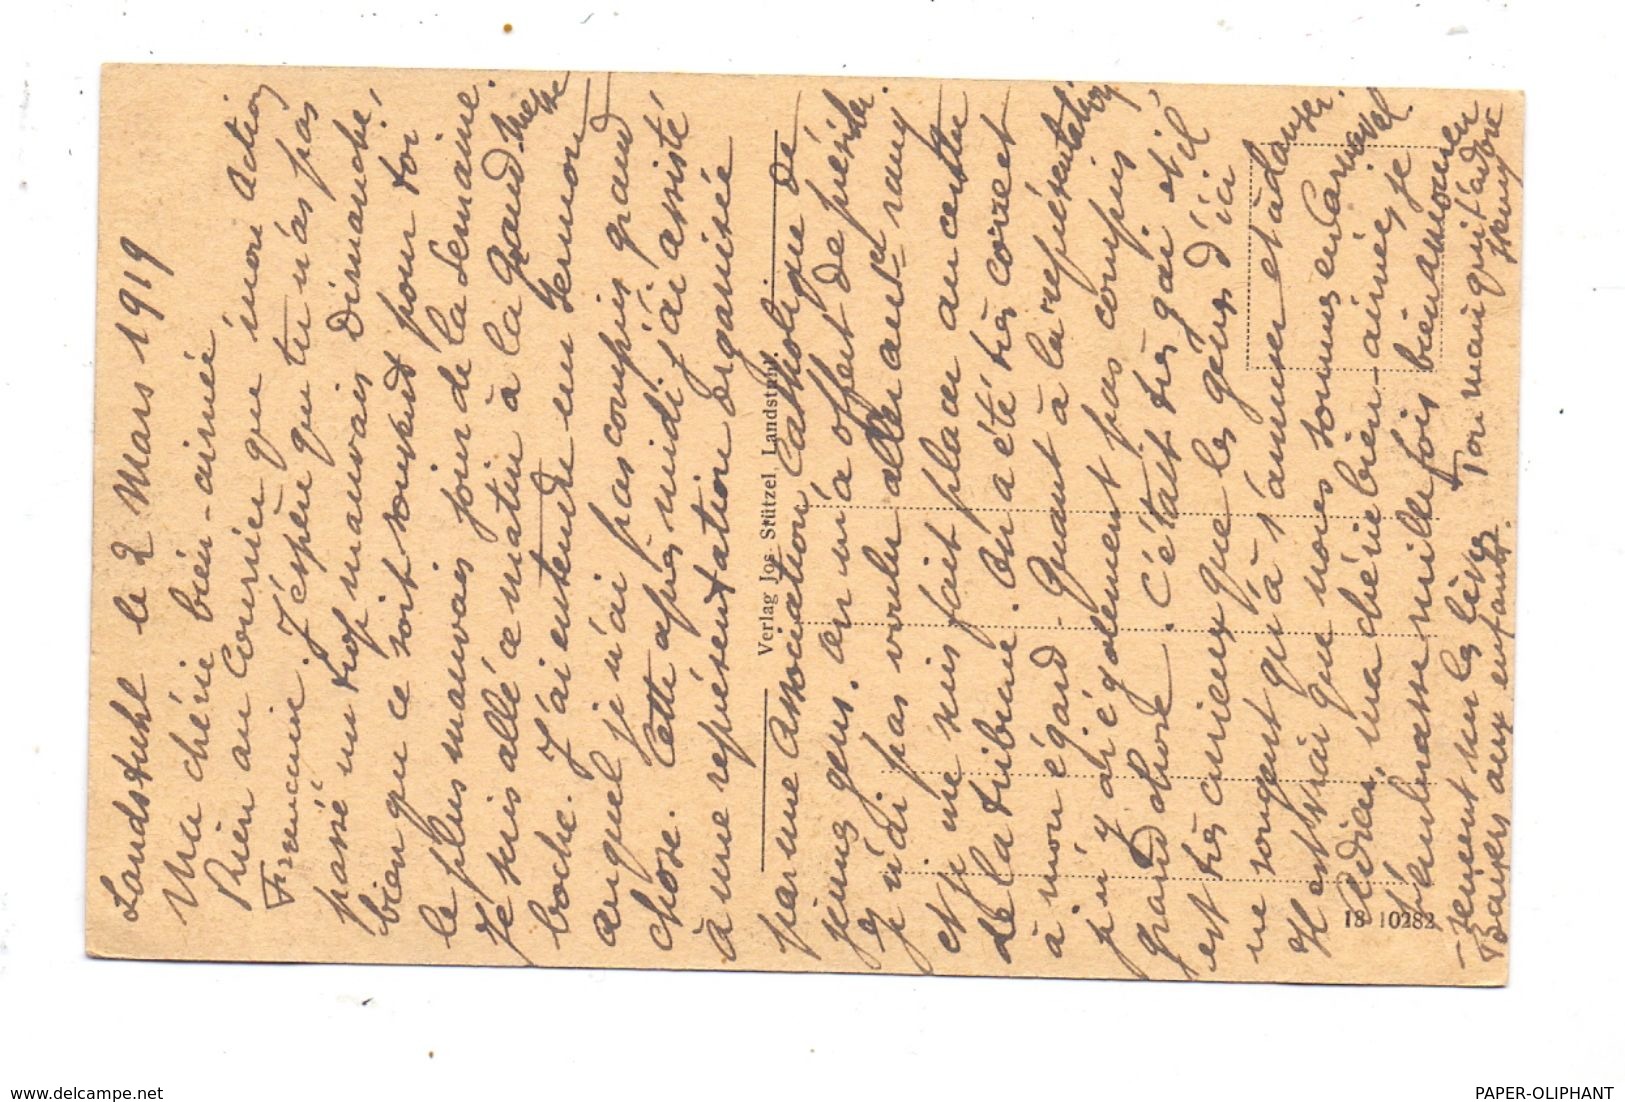 Landstuhl le 2 Mars 1919
Ma chérie bien-aimée
Rien au Courrier que mon Action
Française. J'espère que tu n'as pas
passé un trop mauvais dimanche,
bien que ce soit souvent pour toi
le plus mauvais jour de la semaine.
Je suis allé ce matin à la Grand Messe
boche. J'ai entendu un sermon
auquel je n'ai pas compris grand
chose. Cette après midi j'ai assisté
à une représentation organisée
par une Association Catholique de
jeunes gens. On m'a offert de présider.
Je n'ai pas voulu aller au 1er rang
et je me suis fait placer au centre
de la tribune. On a été très correct
à mon égard. Quant à la représentation
je n'y ai également pas compris
grand chose. C'était très gai et il
est très curieux que les gens d'ici
ne songent qu'à s'amuser et à danser.
Il est vrai que nous sommes en Carnaval
Adieu, ma chérie bien-aimée, je
t'embrasse mille fois bien amoureu
sement sur les lèvres Ton mari qui t'adore
Baisers aux enfants.
Verlag Jos Stützel, Landstuhl.
18 10282
www.delcampe.net
PAPER-OLIPHANT